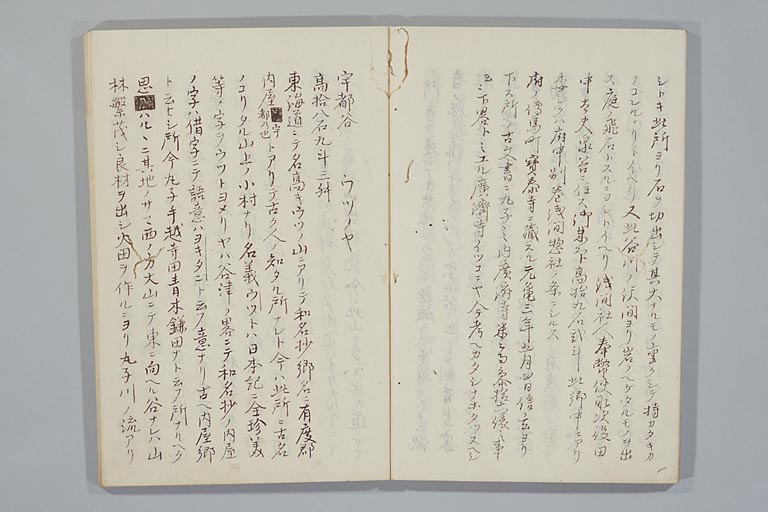 シトキ此所ヨリ石ヲ切出シテ其大ナルモノ重クシテ持カタキカ
ノコレルナリトイヘリ又此谷川ノ渓間ヨリ岩ノヘゲタルモノヲ出
ス庭ノ飛石トスルニヨシトイヘリ浅間社ヘ奉幣使取次役田
中大夫泉谷ニ住ス御朱印高拾九石弐斗此郷中ニアリ
委シクハ府中別巻浅間惣社ノ条ニシルス
府ノ傳馬町寶泰寺ニ藏スル元亀三年五月四日信玄ヨリ
下ス所ノ古文書ニ九子之内廣済寺
ト下畧トミエル廣濟寺イツコニヤ今考ヘカタシナホタツヌヘシ
宇都谷 ウツノヤ
高拾八石九斗三舛
東海道ニテ名高キウツノ山ニアリテ和名抄郷名ニ有度郡
内屋 トアリテ古ク人ノ知タル所ナレト今ハ此所ニ古名
ノコリタル山上ノ小村ナリ名義ウツトハ日本記ニ全珍美
等ノ字ヲウツトヨメリヤハ谷津ノ畧ニテ和名抄ノ内屋
ノ字ハ借字ニテ語意ハヨキタニト云フ意ナリ古ヘ内屋郷
ト云ヒシ所今丸子手越寺田青木鎌田ナト云フ所ナルヘク
思ハルヽニ其地ノサマ西ノ方大山ニテ東ニ向ヘル谷ナレハ山
林繁茂シ良材ヲ出シ火田ヲノ作ルニヨリ丸子川ノ流アリ